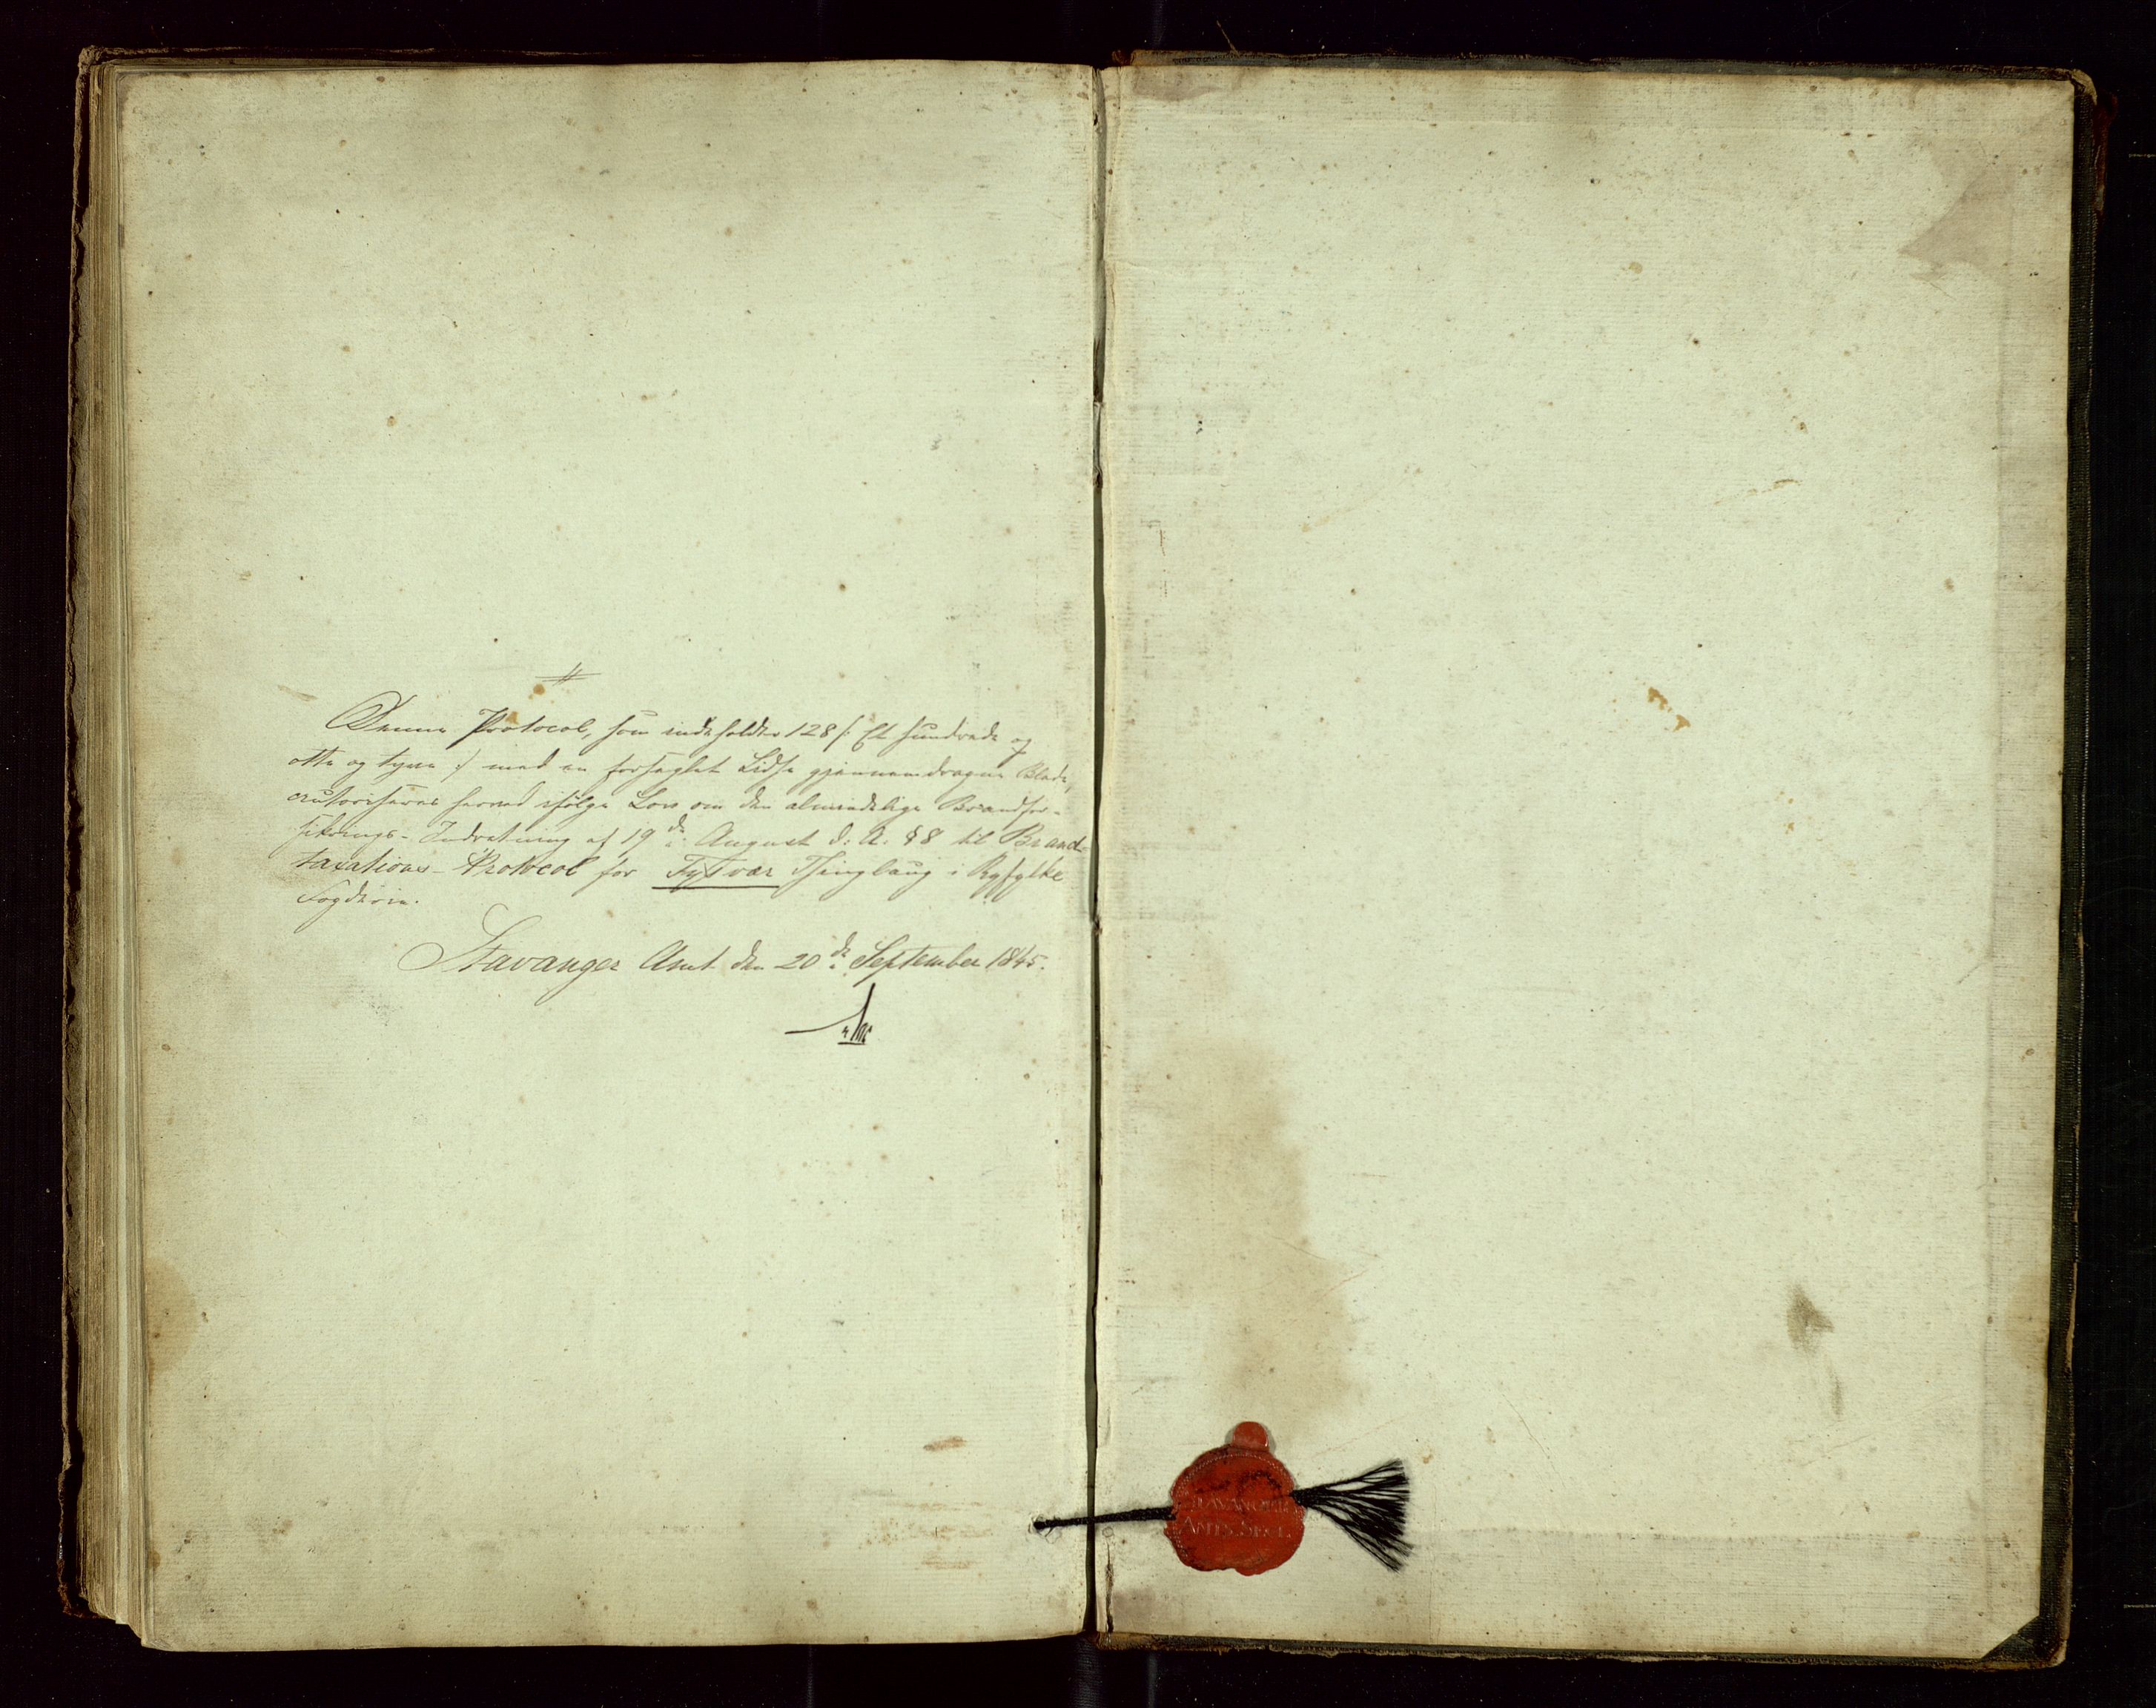 Denne Protocol, som indeholder 128 /: Et hundrede og
otte og tyve :/ med en forseglet Lidse gjennemdragne Blade,
autoriseres herved ifølge Lov om den almindelige Brandfor-
sikrings-Indretning af 19de August d: A: §8 til Brand-
taxations-Protocol for Tysvær Thinglaug i Ryfylke
Fogderie.
Stavanger Amt den 20de September 1845.
STAVANGER
AMTS SEGL